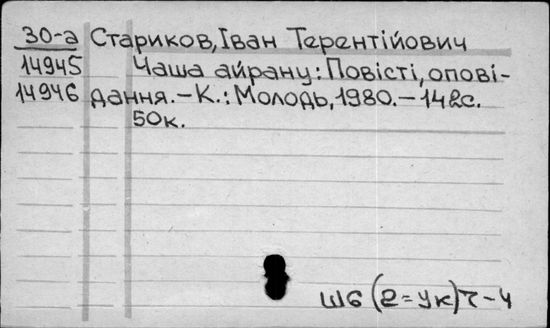 30-а Стариков, Іван Терентійович
14945 Чаша айрану: Повісті, опові-
14946 дання. – К.: Молодь, 1980. – 142с.
50к.
Ш6(2=Ук)7-4